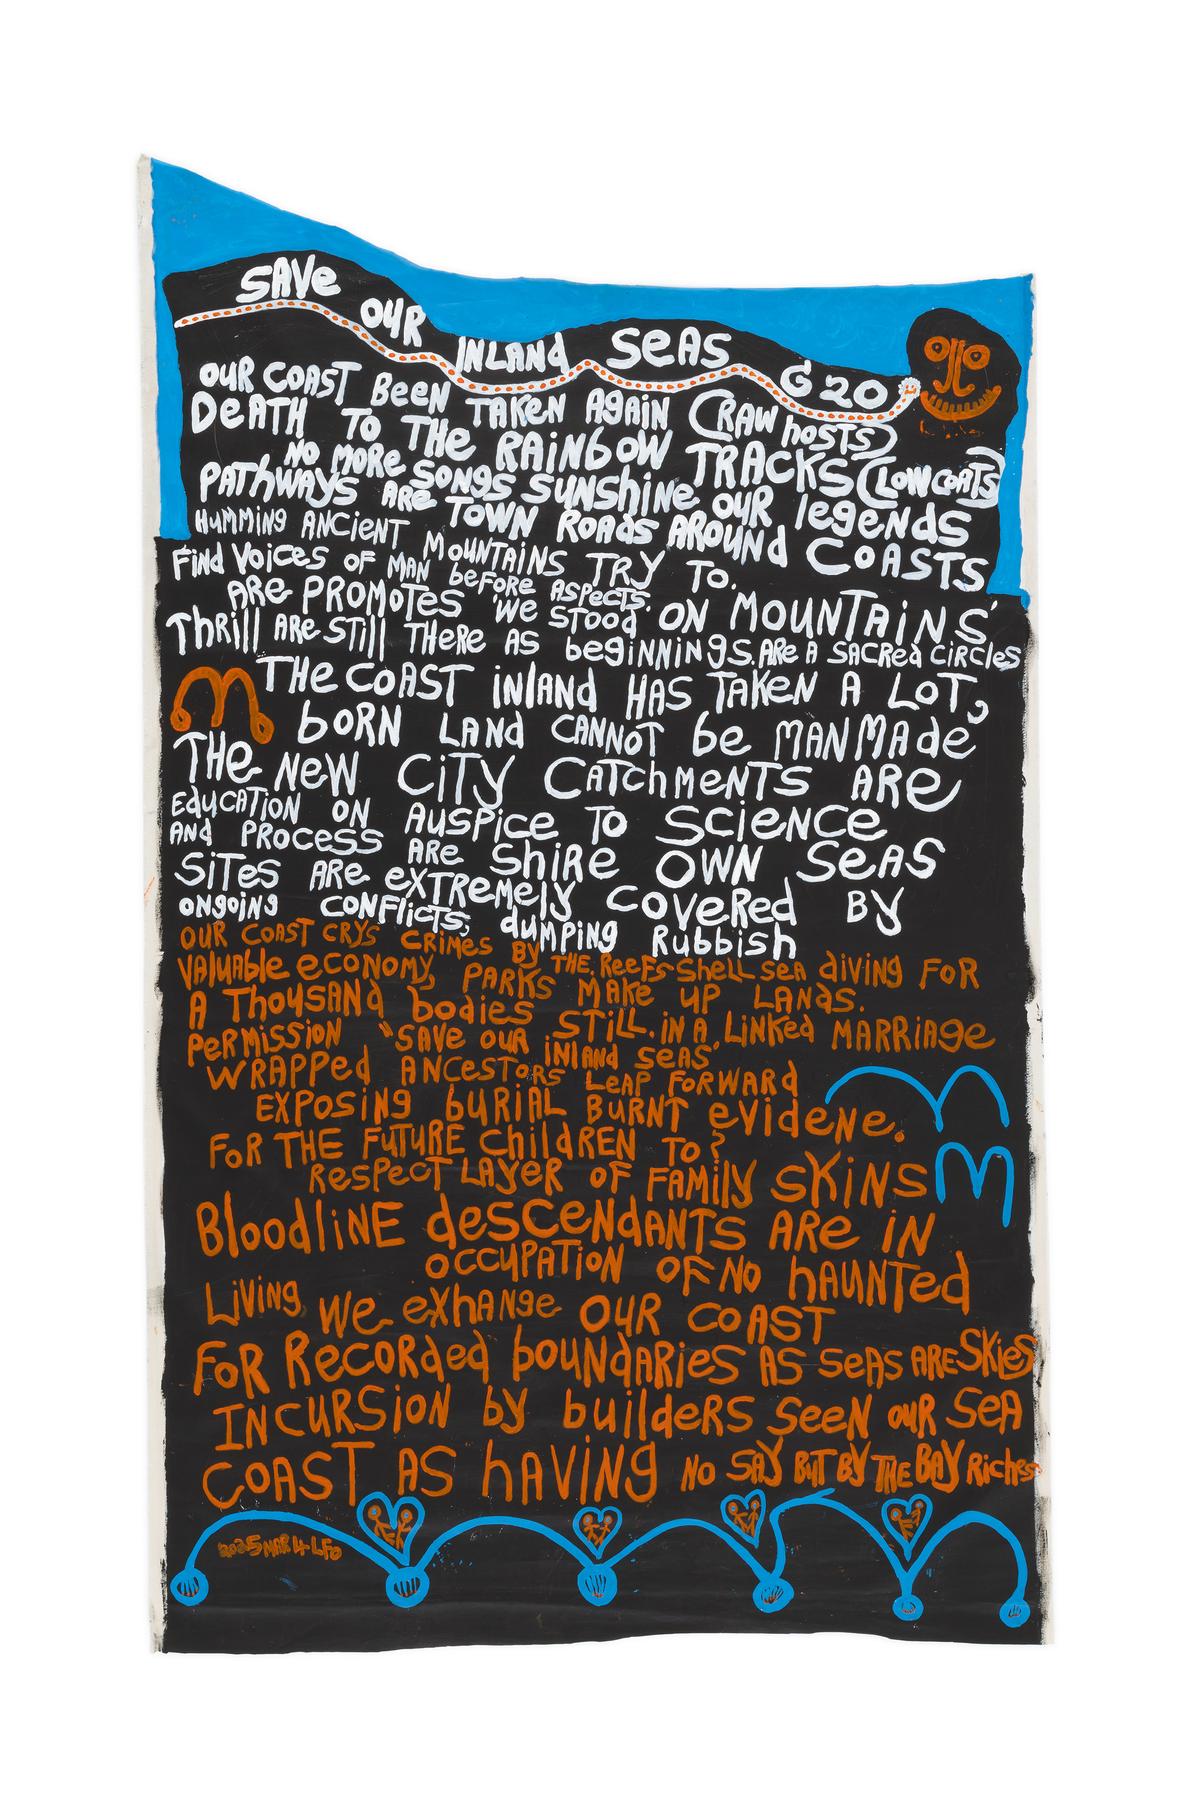 SAVe OUR INLANd SeAS G20
OUR COAST BEEN TAKEN AgAiN (RAW hosTS)
DeATH TO THe RAiNbOW TRACKS (LOW COATS)
NO MORe SONgS SUNShiNe OUR legeNdS
PATHWAYS ARe TOWN ROAdS AROUNd COASTS
HUMMiNg ANCieNT MOUNTAiNS TRY TO.
FiNd VOiCeS OF MAN beFORe ASPeCTS.
ARe PROMOTeS 'We STOOd ON MOUNTAiNS'
ThRill ARe STill THeRe AS begiNNiNgS. ARe A SACRed CiRCleS
M THe COAST iNlANd HAS TAKeN A LOT,
bORN LANd CANNOT be MANMAde
THe NeW CiTY CATChMeNTS ARe
EdUCATiON ON AUSPiCe TO SCieNCe
ANd PROCeSS ARe ShiRe OWN SeAS
SiTeS ARe eXTReMelY COVeRed BY
ONgOiNg CONFliCTS, dUMPiNg RUbbiSh
OUR COAST CRYS CRiMeS BY THE.ReeFS-Shell SeA diViNg FOR
VAlUAble eCONOMY, PARKS MAKe UP LANdS.
A ThOUSANd bOdieS STill. iN A LiNKed MARRiAge
PeRMiSSiON "SAVe OUR iNlANd SeAS"
WRAPPed ANCeSTORS LeAP FORWARd
EXPOSiNg bURiAL BURNT eVideNe.
FOR THe FUTURe ChildReN TO?
ReSPeCT LAYeR OF FAMilY SKiNS M
BloodliNE deSCeNdANTS ARe iN
OCCUPATiON OF NO hAUNTed
LiViNg We eXhANge OUR COAST
FOR ReCORded bOUNdARieS AS SeAS ARe SKieS
INCURSiON by bUildeRS SeeN OUR SeA
COAST AS hAViNg NO SAY BUT BY THe BAY RiCheS
2025 MAR 4 LFO